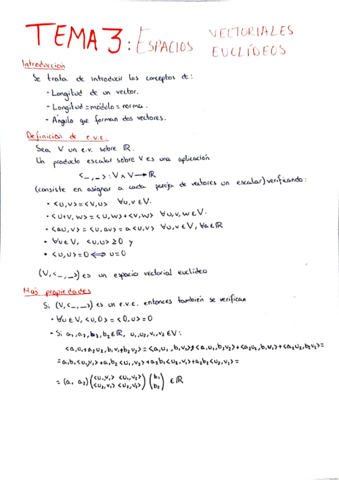 TEMA 3: ESPACIOS VECTORIALES EUCLÍDEOS
Introducción
Se trata de introducir los conceptos de:
· Longitud de un vector.
· Longitud = módulo = norma.
· Ángulo que forman dos vectores.
Definición de e.v.e.
Sea V un e.v. sobre ℝ.
Un producto escalar sobre V es una aplicación
<_,_> : V ∧ V → ℝ
(consiste en asignar a cada pareja de vectores un escalar) verificando:
· <u,v> = <v,u> ∀u,v ∈ V.
· <u+v,w> = <u,w> + <v,w> ∀u,v,w ∈ V.
· <au,v> = <u,av> = a<u,v> ∀u,v ∈ V, ∀a ∈ ℝ
· ∀u ∈ V, <u,u> ≥ 0 y
· <u,u> = 0 ⟺ u = 0
(V,<_,_>) es un espacio vectorial euclídeo
Más propiedades
Si (V,<_,_>) es un e.v.e. entonces también se verifican
· ∀u ∈ V, <u,0> = <0,u> = 0
· Si a₁,a₂,b₁,b₂ ∈ ℝ, u₁,u₂,v₁,v₂ ∈ V:
<a₁u₁+a₂u₂, b₁v₁+b₂v₂> = <a₁u₁, b₁v₁> + <a₁u₁, b₂v₂> + <a₂u₂, b₁v₁> + <a₂u₂, b₂v₂> =
= a₁b₁<u₁,v₁> + a₁b₂<u₁,v₂> + a₂b₁<u₂,v₁> + a₂b₂<u₂,v₂> =
= (a₁ a₂) (<u₁,v₁> <u₁,v₂>
<u₂,v₁> <u₂,v₂>) (b₁
b₂) ∈ ℝ